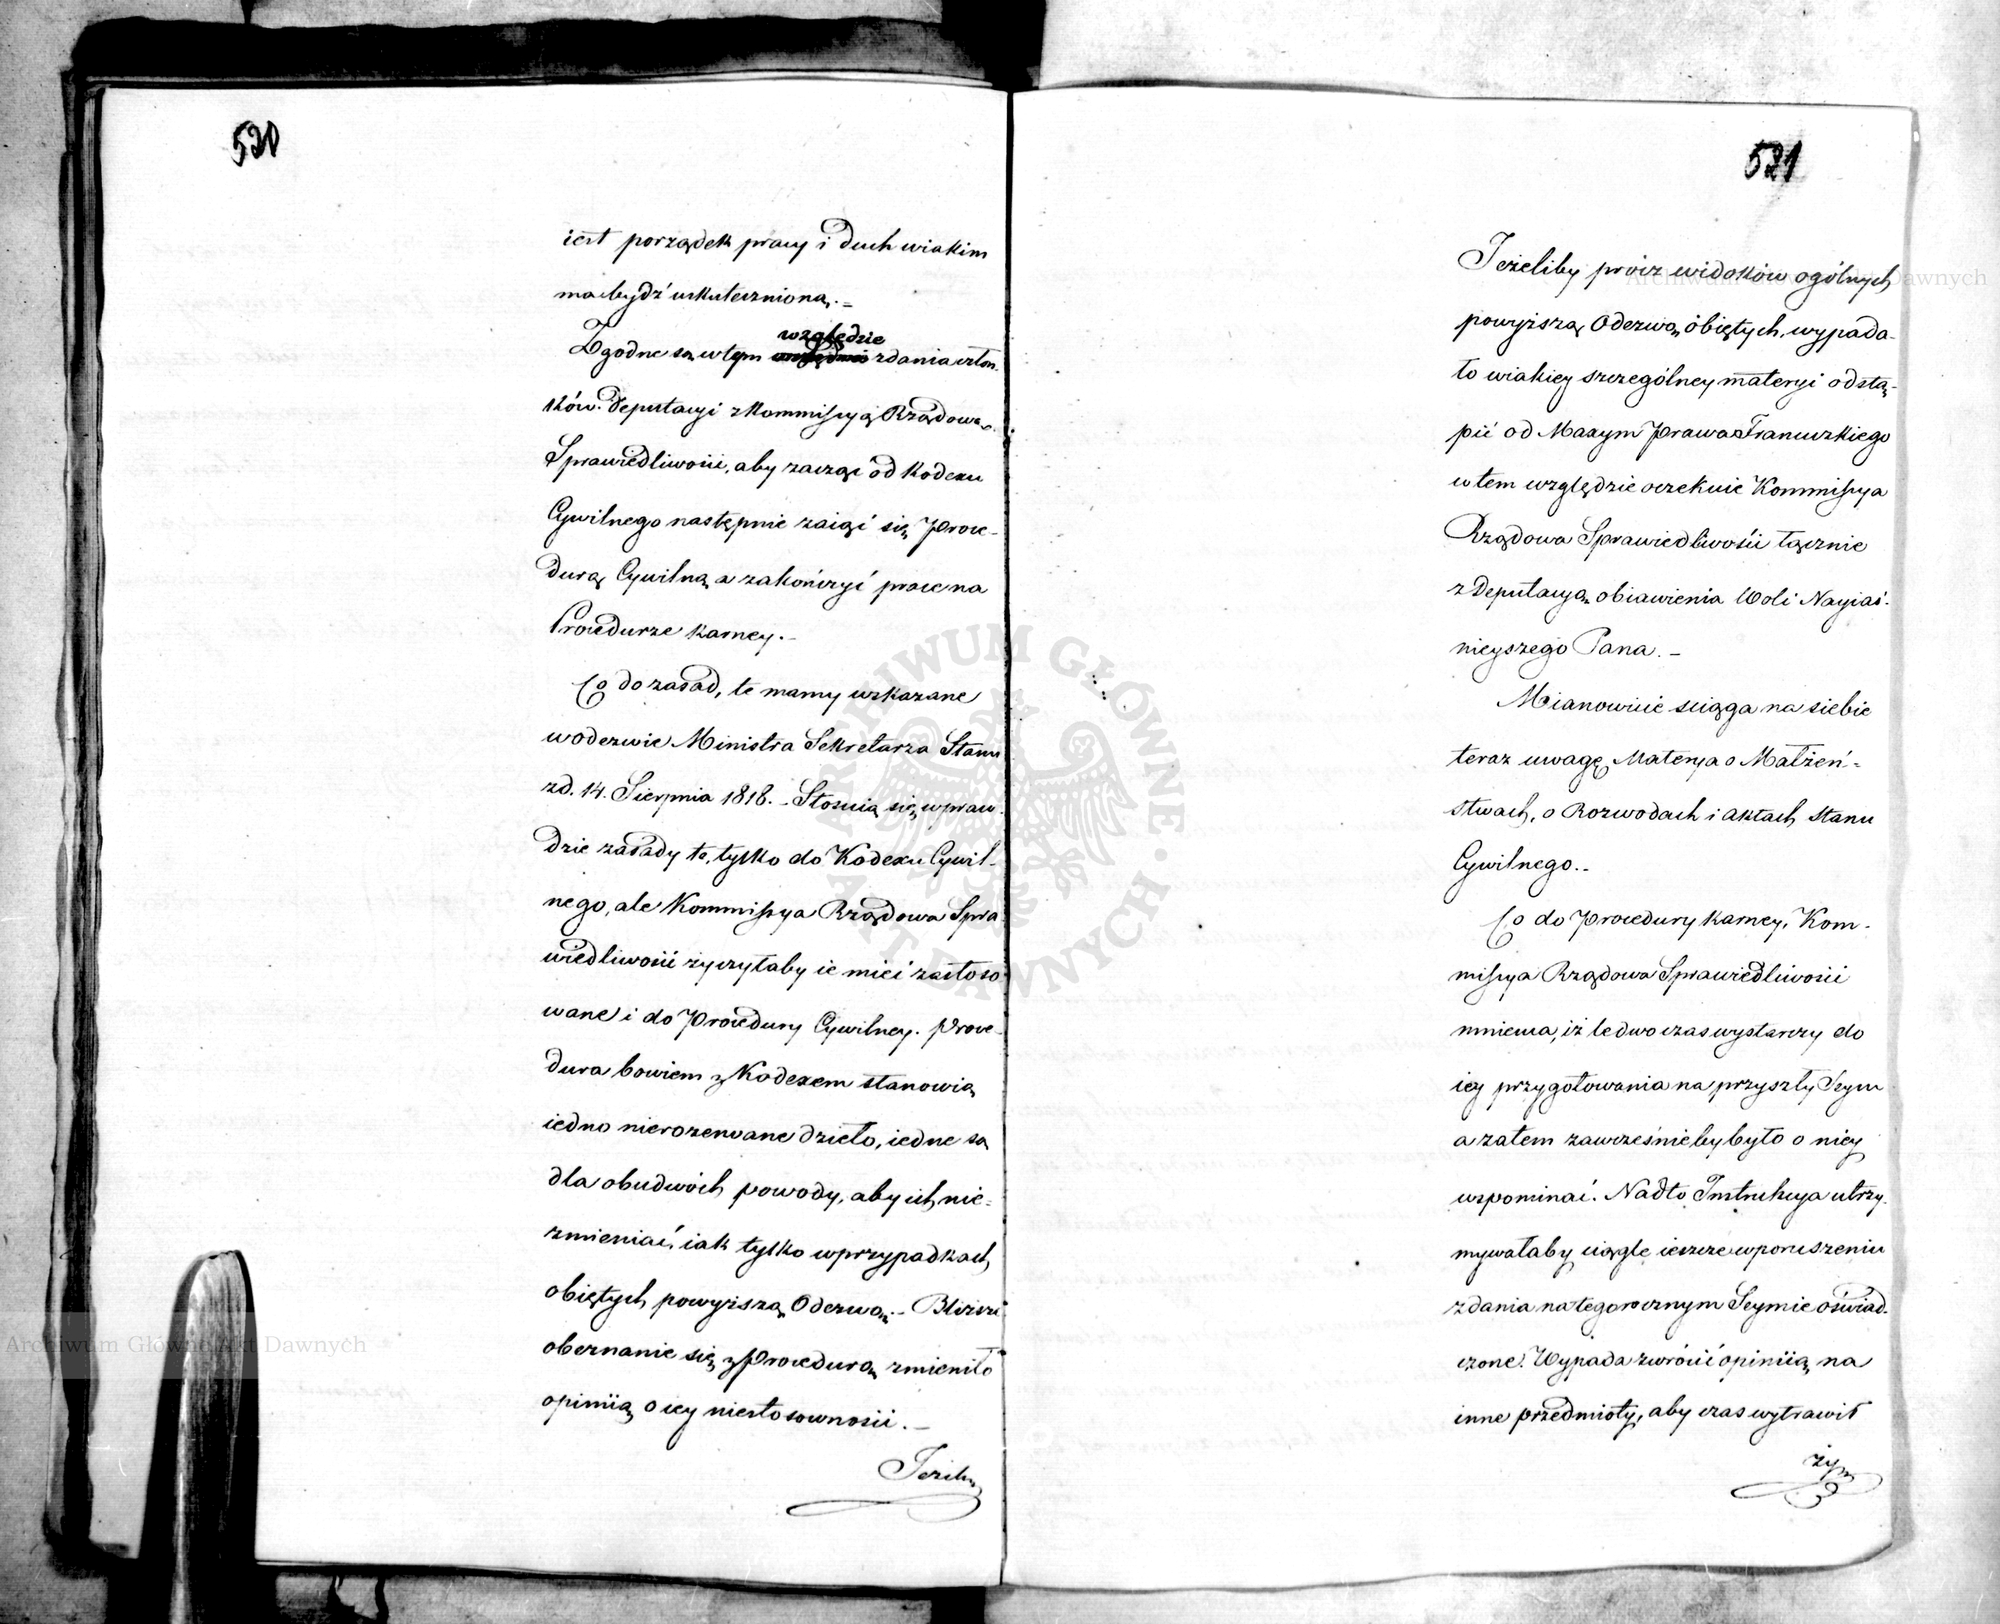 520
iest porządek pracy i duch wiakim
ma bydź uskuteczniona. –
względzie
Zgodne są w tym zdania człon-
ków Deputacyi z Kommissyą Rządową
Sprawiedliwości, aby zacząć od Kodexu
Cywilnego następnie zaiąć się Proce-
durą Cywilną a zakończyć prace na
Procedurze karney. –
Co do zasad, te mamy wskazane
w odezwie Ministra Sekretarza Stanu
z d. 14. Sierpnia 1818. – Stosuią się wpraw-
dzie zasady te, tylko do Kodexu Cywil-
nego, ale Kommissya Rządowa Spra-
wiedliwości życzyłaby ie mieć zastoso-
wane i do Procedury Cywilney. Proce-
dura bowiem z Kodexem stanowią
iedno nierozerwane dzieło, iedne są
dla obudwóch powody, aby ich nie-
zmieniać, iak tylko w przypadkach
obiętych powyższą Odezwą. – Bliższe
obeznanie się z Procedurą zmieniło
opiniią o iey niestosowności. –
Jeżeliby
521
Jeżeliby prócz widoków ogólnych
powyższą Odezwą obiętych, wypada-
ło wiakiey szczególney materyi odstą-
pić od Maxym Prawa Francuzkiego
w tem względzie oczekuie Kommissya
Rządowa Sprawiedliwości łącznie
z Deputacyą obiawienia Woli Nayiaś-
nieyszego Pana. –
Mianowicie ściąga na siebie
teraz uwagę Materya o Małżeń-
stwach, o Rozwodach i aktach Stanu
Cywilnego. –
Co do Procedury karney, Kom-
missya Rządowa Sprawiedliwości
mniema, iż ledwo czas wystarczy do
iey przygotowania na przyszły Seym
a zatem zawcześnie by było o niey
wspominać. Nadto Instrukcya utrzy-
mywałaby ciągle ieszcze w poruszeniu
zdania na tegorocznym Seymie oświad-
czone. Wypada zwrócić opiniią na
inne przedmioty, aby czas wytrawił
Archiwum Główne Akt Dawnych
Archiwum Główne Akt Dawnych
ARCHIWUM GŁÓWNE AKT DAWNYCH